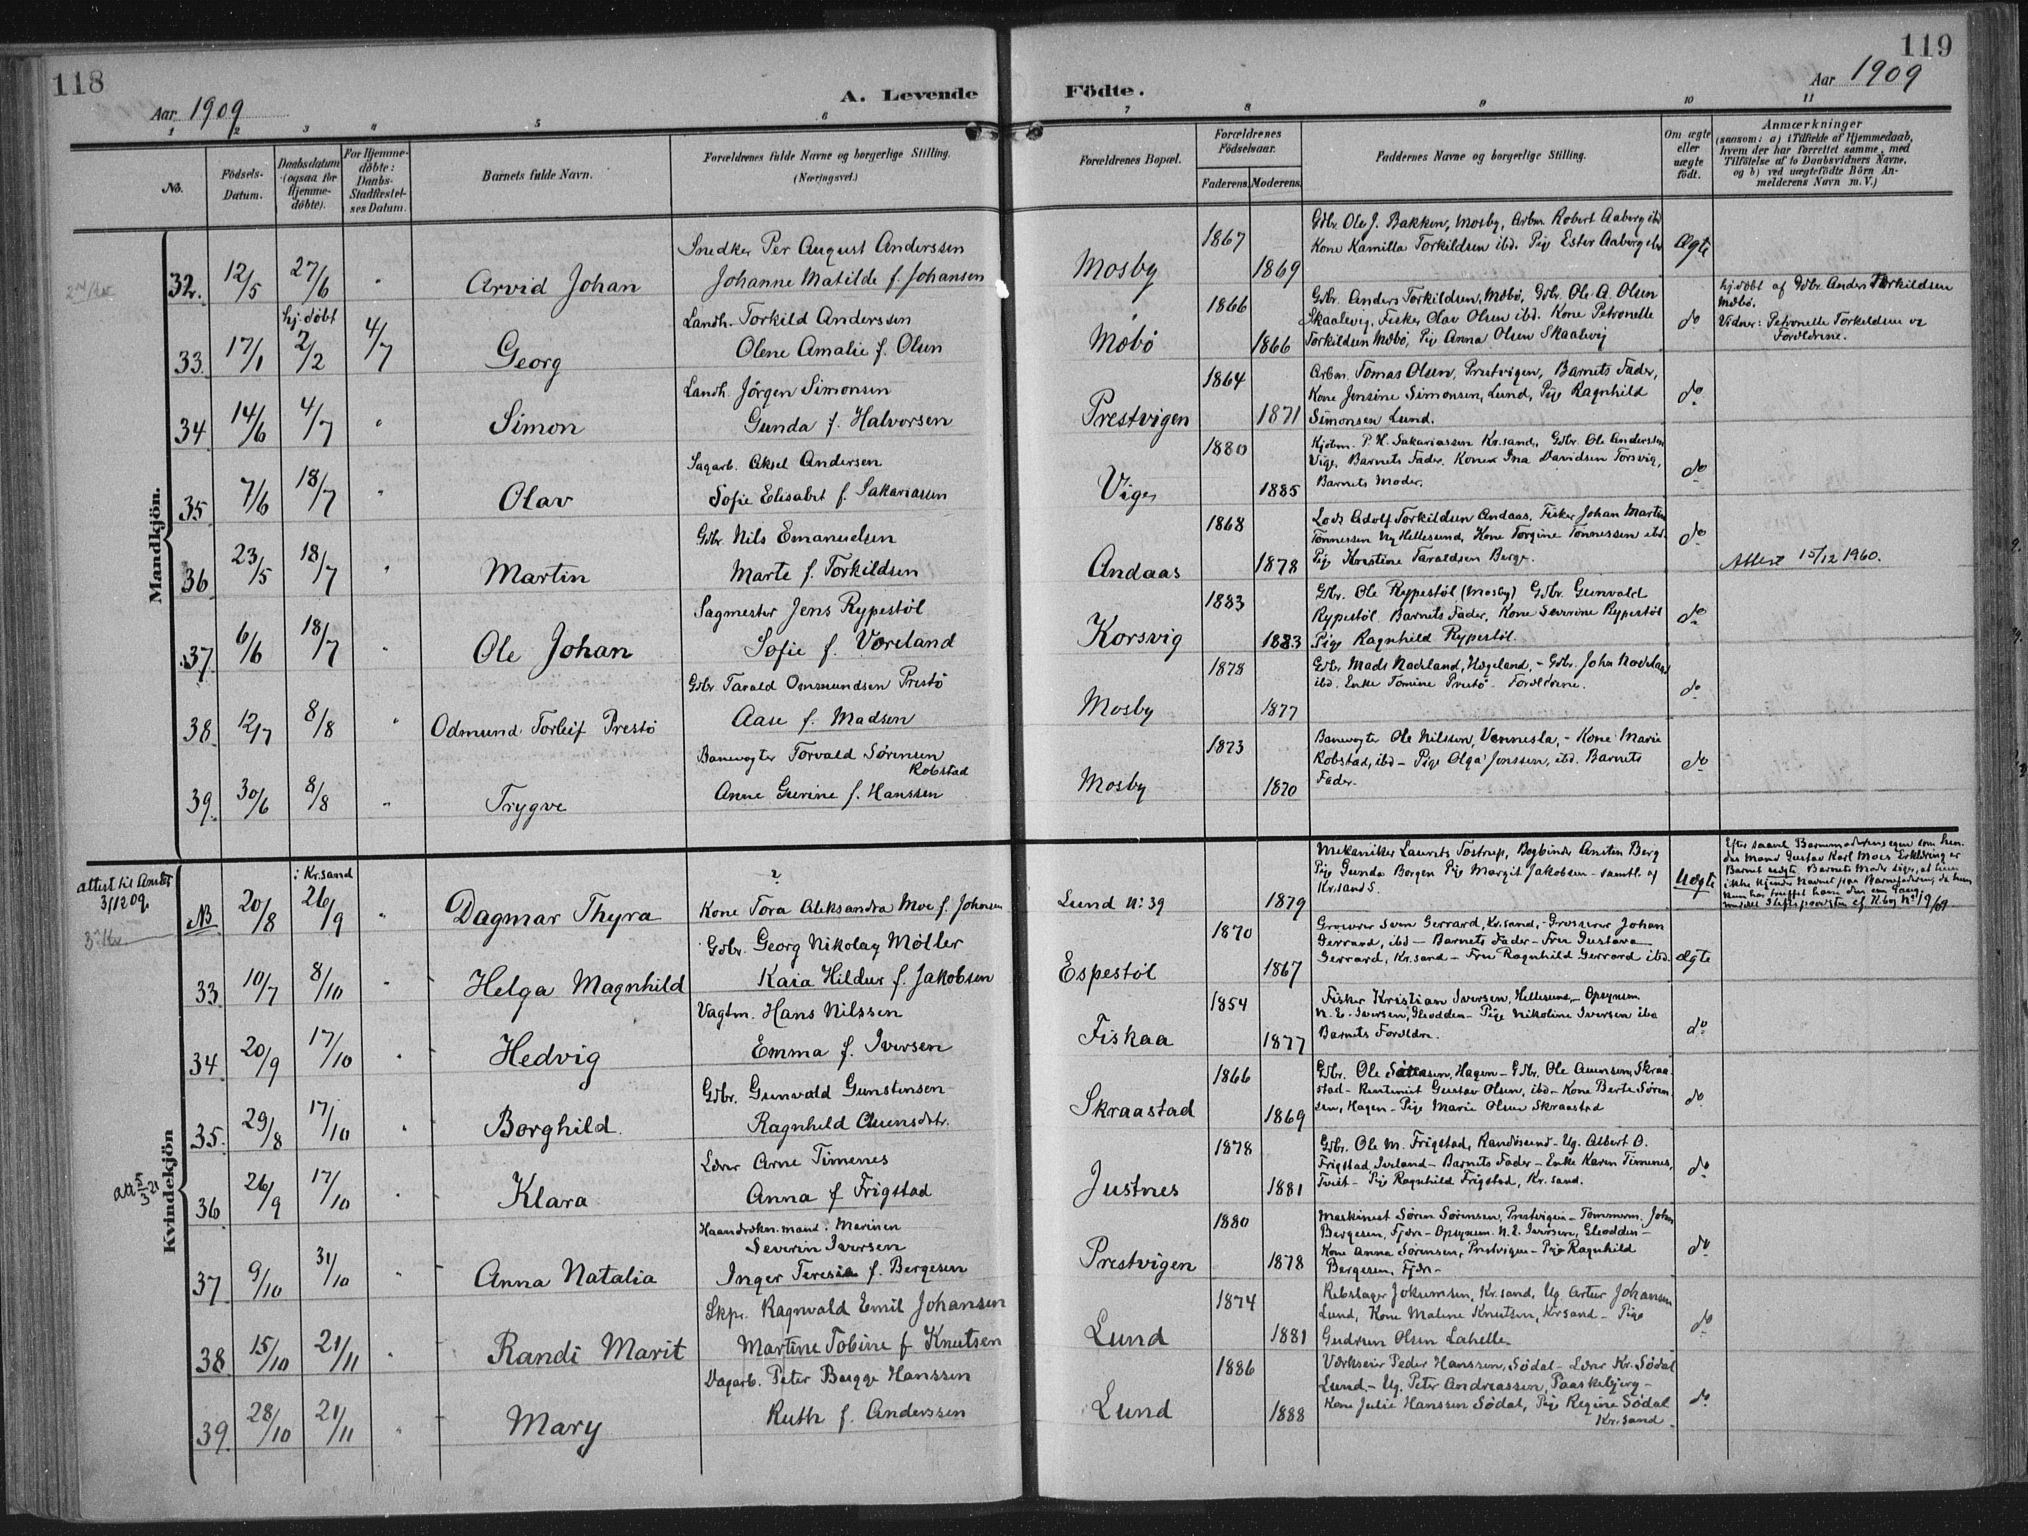 118
119
Aar 1909
A. Levende
Födte.
Aar 1909
1 2 3 4 5 6 7 8 9 10 11
No.
Födsels-
Datum.
Daabsdatum
(ogsaa for
Hjemme-
døbte).
For Hjemme-
døbte:
Daabs-
Stadfæstel-
ses Datum.
Barnets fulde Navn.
Forældrenes fulde Navne og borgerlige Stilling.
(Næringsvei.)
Forældrenes Bopæl.
Forældrenes
Födselsaar.
Faderens. Moderens.
Faddernes Navne og borgerlige Stilling.
Om ægte
eller
uægte
født.
Anmærkninger
(saasom: a) i Tilfælde af Hjemmedaab,
hvem der har forrettet samme, med
Tilföielse af to Daabsvidners Navne,
og b) ved uægtefödte Börn An-
melderens Navn m. V.)
Mandkjön.
32. 12/5 27/6 " Arvid Johan
Snedker Per August Anderssen
Johanne Matilde f. Johansen
Mosby 1867 1869
Gbr. Ole J. Bakken, Mosby, Arbm. Robert Aaberg ibd.
Kone Kamilla Torkildsen ibd. Pige Ester Aaberg ibd
Ægte
33. 17/1 hj.døbt 2/2 4/7 Georg
Landh. Torkild Anderssen
Olene Amalie f. Olsen
Mæbø 1866 1866
Gbr. Anders Torkildsen, Mæbø, Gbr. Ole A. Olsen
Skaalevig, Fisker Olav Olsen ibd. Kone Petronelle
Torkildsen Mæbø, Pige Anna Olsen Skaalevig
do
hj.døbt af Gdbr. Anders Torkildsen
Mæbø.
Vidner: Petronelle Torkildsen og
Forældrene.
34 14/6 4/7 " Simon
Landh. Jörgen Simonsen
Gunda f. Halvorsen
Prestvigen 1864 1871
Arbm. Tomas Olsen, Prestvigen, Barnets Fader,
Kone Jensine Simonsen, Lund, Pige Ragnhild
Simonsen Lund.
do
35 7/6 18/7 " Olav
Sagarb. Aksel Andersen
Sofie Elisabet f. Sakariassen
Vige 1880 1885
Kjøbm. P. H. Sakariassen Kr.sand, Gbr. Ole Anderssen
Vige, Barnets Fader, Kone Ina Davidsen Torsvig,
Barnets Moder.
do
36 23/5 18/7 " Martin
Gdbr. Nils Emanuelsen
Marte f. Torkildsen
Andaas 1868 1878
Lods Adolf Torkildsen Andaas, Fisker Johan Martin
Tønnessen Ny Hellesund, Kone Torgine Tønnessen ibd.
Pige Kristine Taraldsen Berge.
do
Attest 15/12 1960.
37. 6/6 18/7 " Ole Johan
Sagmester Jens Rypestöl
Sofie f. Væreland
Korsvig 1883 1883
Gbr. Ole Rypestöl (Mosby) Gdbr. Gunvald
Rypestöl Barnets Fader, Kone Severine Rypestöl
Pige Ragnhild Rypestöl.
do
38 12/7 8/8 " Odmund Torleif Prestö
Gdbr Tarald Omundsen Prestö
Aase f. Madsen
Mosby 1878 1877
Gdbr. Mads Nadeland, Hægeland, - Gdbr. John Nodeland
ibd. Enke Tomine Prestö. Forældrene.
do
39. 30/6 8/8 " Trygve
Banevogter Torvald Sörensen
Robstad
Anne Gurine f. Hanssen
Mosby 1873 1870
Banevogter Ole Nilssen, Vennesla, - Kone Marie
Robstad, ibd - Pige Olga Jenssen, ibd. Barnets
Fader.
do
Kvindekjön
attest til Amtet
3/12 09.
NB 20/8 : Kr.sand 26/9 " Dagmar Thyra
?
Kone Tora Aleksandra Moe f. Johnsen
Lund No: 39 1879
Mekaniker Laurits Tostrup, Bogbinder Aniten Berg
Pige Gunda Borgen Pige Margit Jakobsen - samtl. af
Kr.sand S.
Uægte
Efter saavel Barnemoderens egen som hen-
des Mand Gustav Karl Moes Erklæring er
Barnet uægte. Barnets Moder siger, at hun
ikke kjender Navnet paa Barnefaderen, da hun
kun har truffet ham den ene Gang.
33. 10/7 8/10 " Helga Magnhild
Gdbr. Georg Nikolay Møller
Kaia Hildur f. Jakobsen
Espestöl 1870 1867
Grosserer Sven Gerrard, Kr.sand, - Grosserer Johan
Gerrard, ibd - Barnets Fader - Fru Gustava
Gerrard, Kr.sand - Fru Ragnhild Gerrard ibd.
Ægte
34 20/9 17/10 " Hedvig
Vagtm. Hans Nilssen
Emma f. Iversen
Fiskaa 1854 1877
Fisker Kristian Iversen, Hellesund, - Opsynsm.
N. E. Iversen, Glodden - Pige Nikoline Iversen ibd
Barnets Forældre.
do
35. 29/8 17/10 " Borghild.
Gdbr. Gunvald Gunstensen
Ragnhild Auensdtr.
Skraastad 1866 1869
Gdbr. Ole Hagen - Gdbr. Ole Auensen, Skraa-
stad - Rentenist Gustav Olsen, ibd - Kone Berte Sören-
sen, Hagen - Pige Marie Olsen Skraastad
do
36 26/9 17/10 " Klara
Lærer Arne Timenes
Anna f Frigstad
Justnes 1878 1881
Gdbr. Ole M. Frigstad, Randösund - Ug. Albert O.
Frigstad, Iveland - Barnets Fader - Enke Karen Timenes,
Tveit - Pige Ragnhild Frigstad, Kr.sand.
do
37 9/10 31/10 " Anna Natalia
Haandværksmand: Marinen
Severin Iversen
Inger Teresia f. Bergesen
Prestvigen 1880 1878
Maskinist Sören Sörensen, Prestvigen - Tömmerm. John
Bergesen, Fjære - Opsynsm. N. E. Iversen, Glodden -
Kone Anna Sörensen, Prestvigen - Pige Ragnhild
Bergesen, Fjære -
do
38 15/10 21/11 " Randi Marit
Skpr. Ragnvald Emil Johansen
Martine Tobine f Knutsen
Lund 1874 1881
Rebslager Jokumsen, Kr.sand, Ug. Artur Johansen
Lund, Kone Malene Knutsen, Kr.sand - Pige
Gudrun Olsen Lahelle
do
39. 28/10 21/11 " Mary
Dagarb. Peter Bagge Hanssen
Ruth f. Anderssen
Lund 1886 1888
Værkseier Peder Hanssen, Södal - Lærer Kr. Södal
Lund - Ug. Peter Andreassen, Paaskebjerg -
Kone Julie Hanssen Södal, Pige Regine Södal
Kr.sand.
do